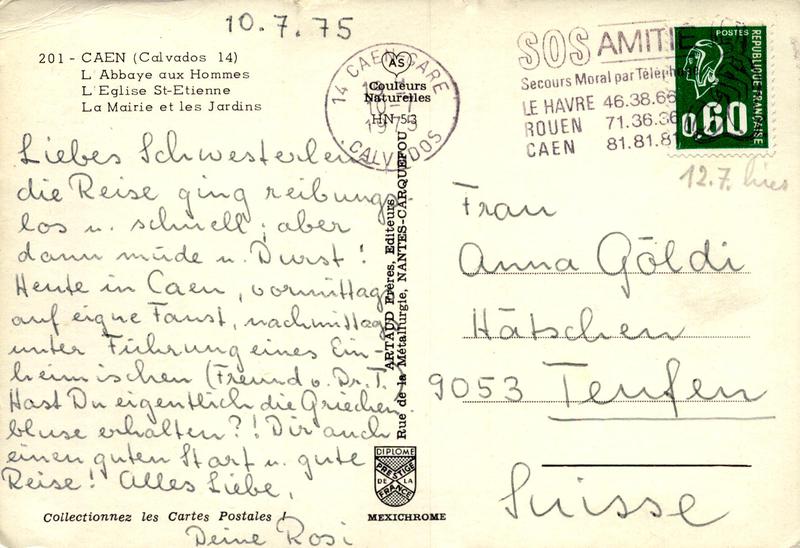 10.7.75
201 - CAEN (Calvados 14)
L'Abbaye aux Hommes
L'Eglise St-Etienne
La Mairie et les Jardins
AS
Couleurs
Naturelles
HN 513
14 CAEN GARE
CALVADOS
SOS AMITIE
Secours Moral par Téléphone
LE HAVRE 46.38.66
ROUEN 71.36.36
CAEN 81.81.81
POSTES
REPUBLIQUE FRANÇAISE
0,60
12.7.
Liebes Schwesterlein
die Reise ging reibungs
los u. schnell; aber
dann müde u. Durst!
Heute in Caen, vormittags
auf eigne Faust, nachmittag
unter Führung eines Ein-
heimischen (Freund v. Dr. T.
Hast Du eigentlich die Griechen
bluse erhalten?! Dir auch
einen guten Start u. gute
Reise! Alles Liebe,
Deine Rosi
ARTAUD Frères, Editeurs
Rue de la Métallurgie, NANTES-CARQUEFOU
Frau
Anna Göldi
Hätschen
9053 Teufen
Suisse
DIPLOME
PRESTIGE
DE LA
FRANCE
Collectionnez les Cartes Postales !
MEXICHROME